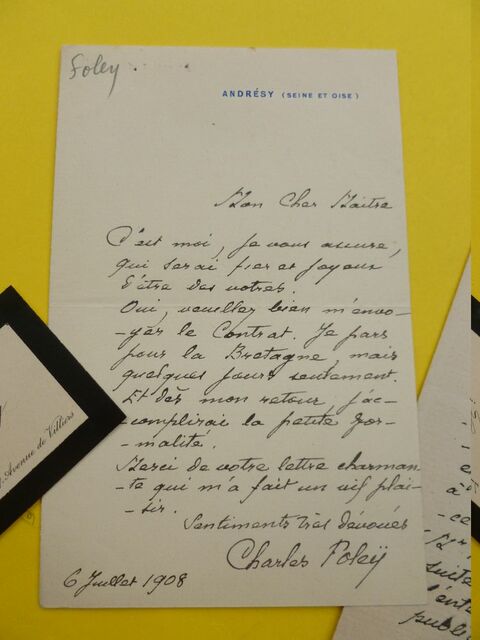 Foley
ANDRÉSY (SEINE ET OISE)
Mon Cher Maitre
C'est moi, je vous assure,
qui serai fier et joyeux
d'être des votres.
Oui, veuillez bien m'envo-
-yer le Contrat. Je pars
pour la Bretagne, mais
quelques jours seulement.
Et dès mon retour, j'ac-
-complirai la petite for-
-malité.
Merci de votre lettre charman-
-te qui m'a fait un vif plai-
-sir.
Sentiments très dévoués
Charles Foleÿ
6 Juillet 1908
Avenue de Villiers
à
-ce
suite
publi